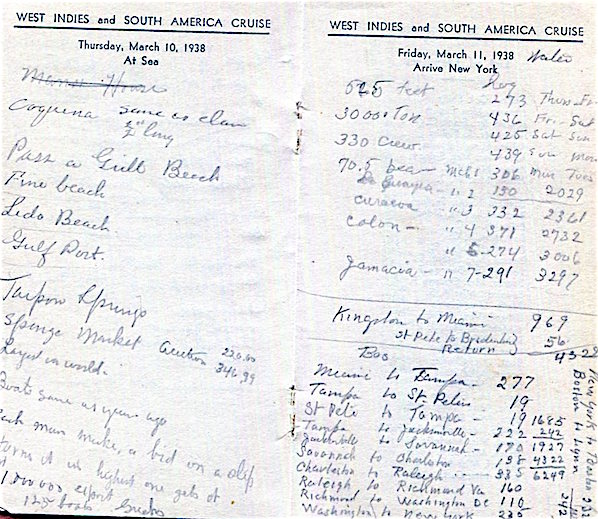 WEST INDIES and SOUTH AMERICA CRUISE
Thursday, March 10, 1938
At Sea
Coquena same as clam
1/2" long
Pass a Grill Beach
Fine beach
Lido Beach
Gulf Port.
Tarpon Springs
Sponge Market Auction 220.00
Largest in world. 346.99
Boats same as years ago
Each man make, a bid on a slip
turns it in highest one gets it
1,000,000 export Greeks
125 boats
WEST INDIES and SOUTH AMERICA CRUISE
Friday, March 11, 1938
Arrive New York
525 feet 273 Thurs-Fri
30000 Ton 436 Fri-Sat
330 Crew 425 Sat Sun
439 Sun Mon
70.5 beam Mch 1 306 Mon Tues
La Guayra - " 2 150 2029
Curacoa " 3 332 2361
Colon - " 4 371 2732
" 5-274 3006
Jamacia - " 7-291 3297
Kingston to Miami 969
St Pete to Bradenton 56
Return 4322
Bus
Miami to Tampa - 277
Tampa to St Peters 19
St Pete to Tampa - 19 1685
Tampa to Jacksonville - 222 242
Jacksonville to Savannah - 170 1927
Savannah to Charleston 135 4322
Charleston to Raleigh --- 335 6249
Raleigh to Richmond Va 160
Richmond to Washington DC 110
Washington to New York 235
New York to Boston 232
Boston to Lynn 10
242